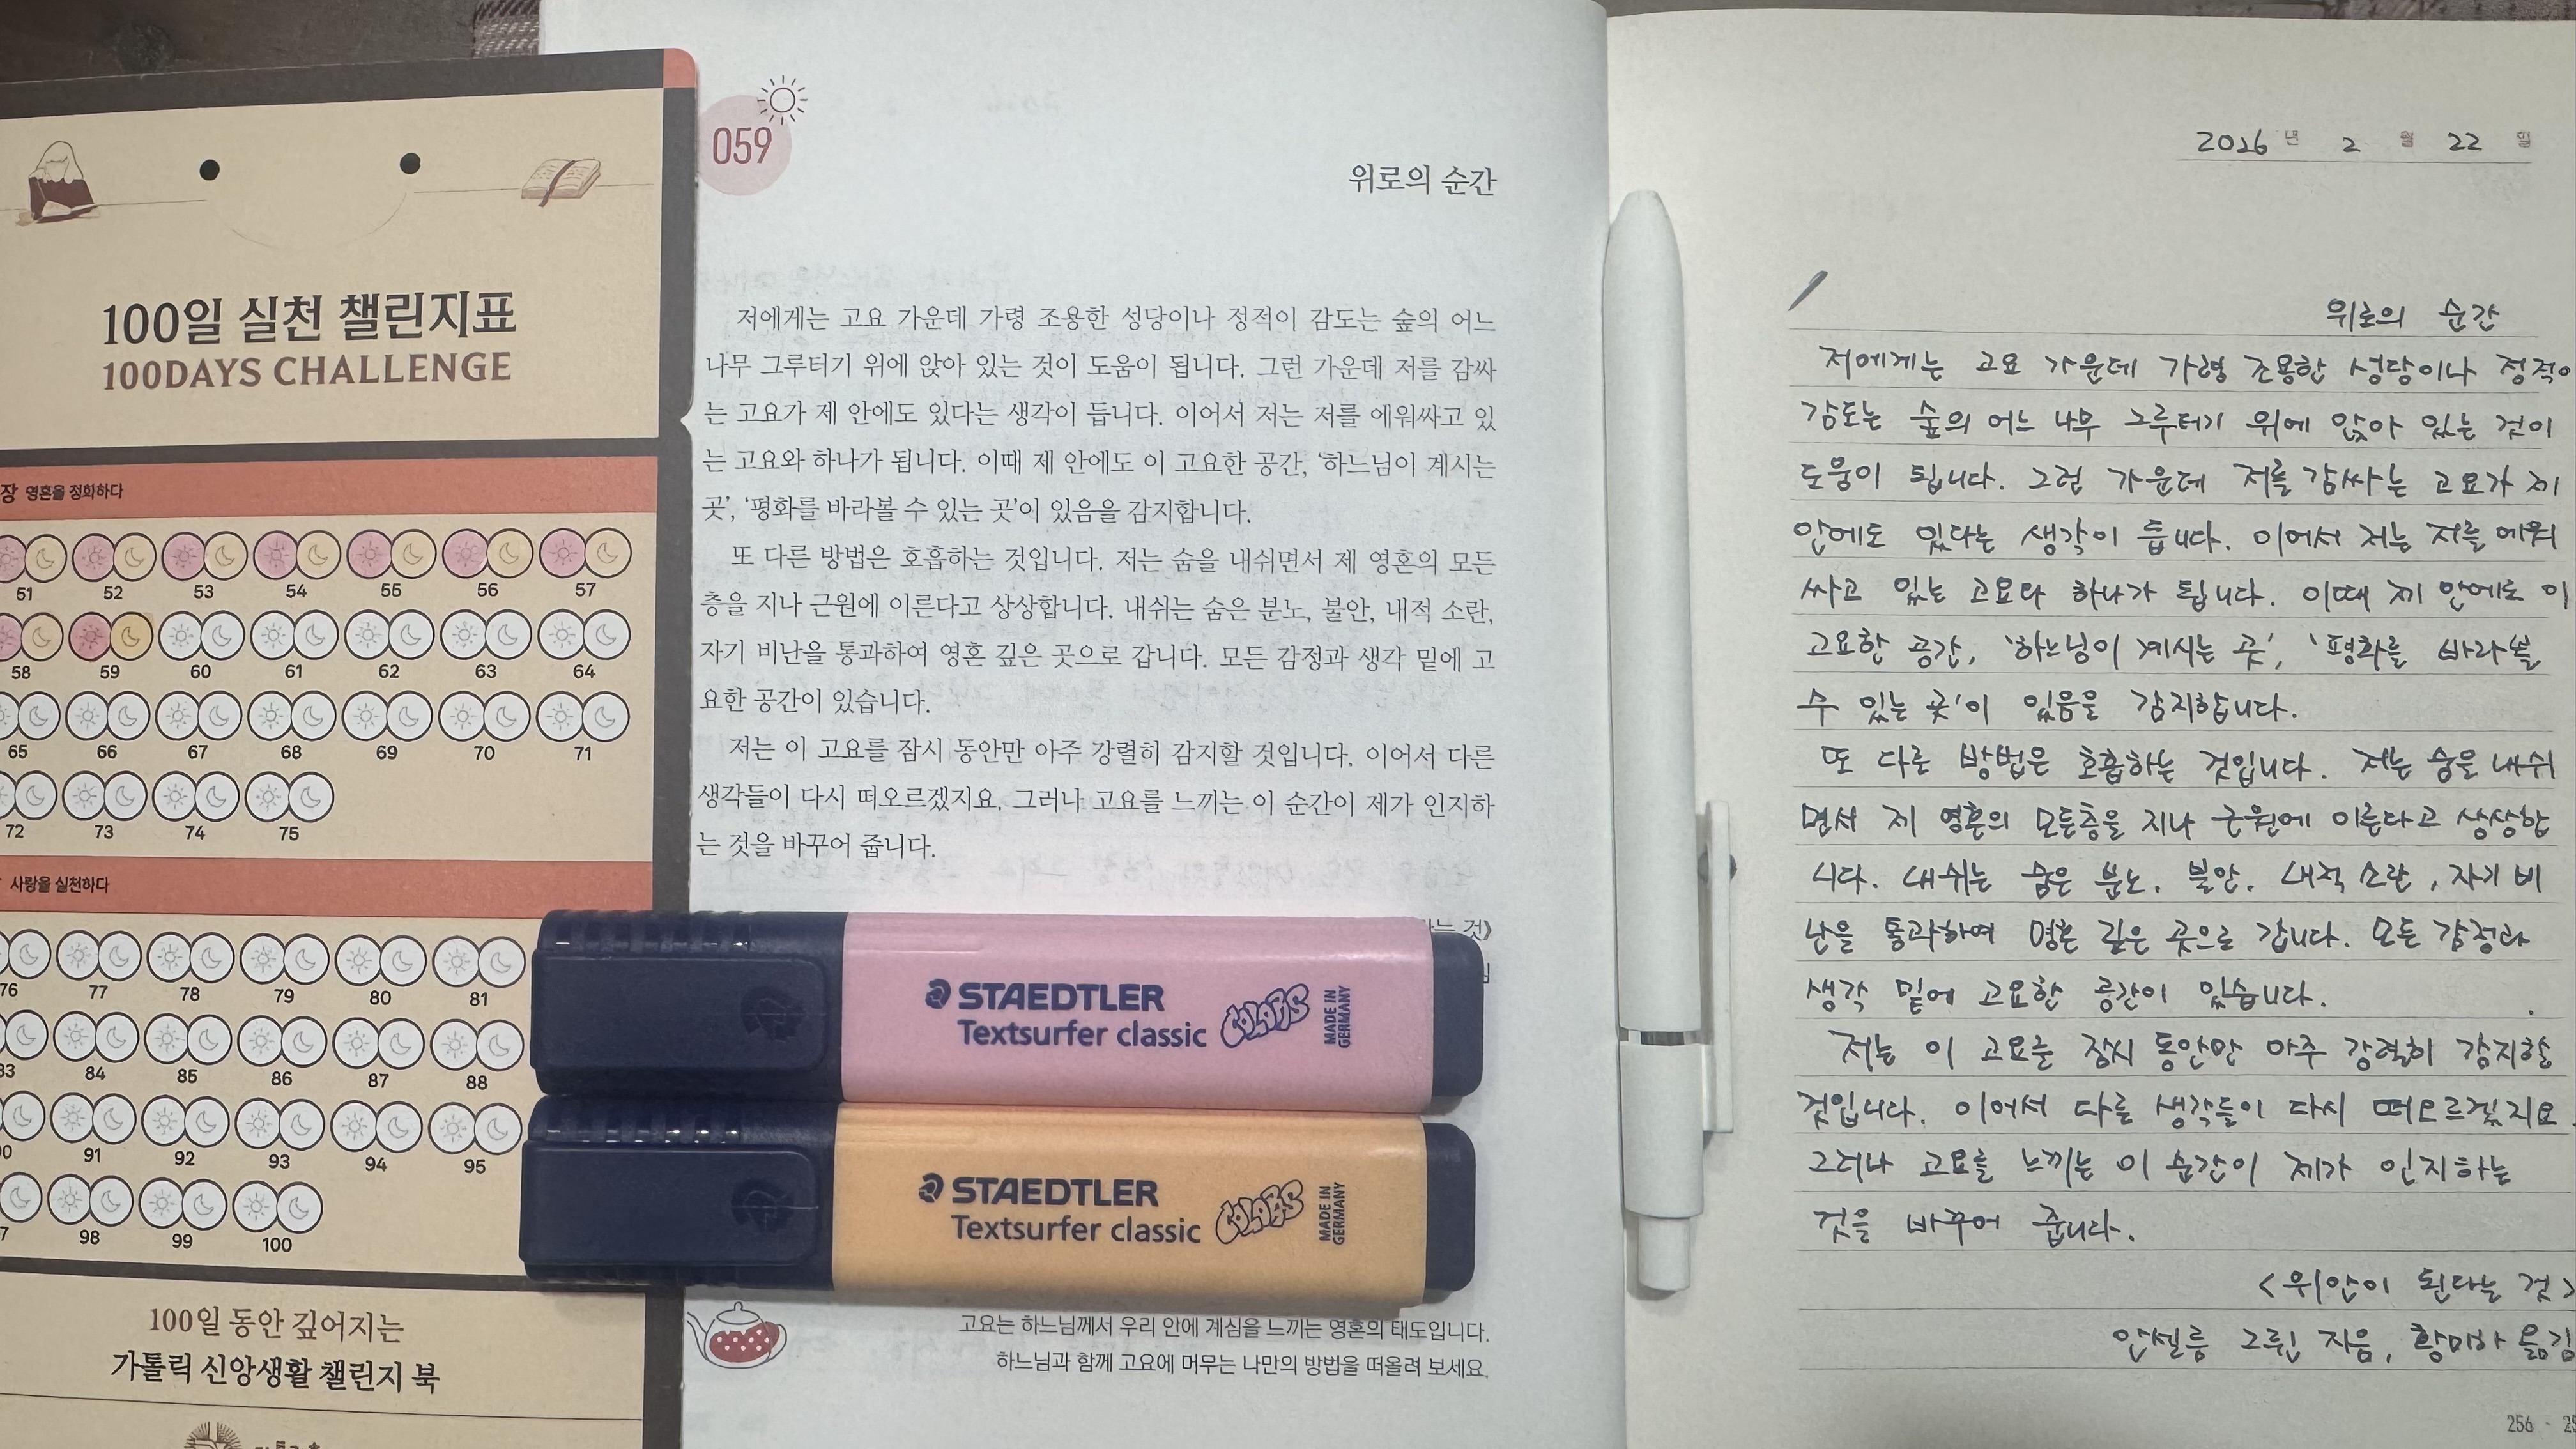 100일 실천 챌린지표
100DAYS CHALLENGE
장 영혼을 정화하다
51 52 53 54 55 56 57
58 59 60 61 62 63 64
65 66 67 68 69 70 71
72 73 74 75
사랑을 실천하다
76 77 78 79 80 81
83 84 85 86 87 88
90 91 92 93 94 95
97 98 99 100
100일 동안 깊어지는
가톨릭 신앙생활 챌린지 북
059
위로의 순간
저에게는 고요 가운데 가령 조용한 성당이나 정적이 감도는 숲의 어느
나무 그루터기 위에 앉아 있는 것이 도움이 됩니다. 그런 가운데 저를 감싸
는 고요가 제 안에도 있다는 생각이 듭니다. 이어서 저는 저를 에워싸고 있
는 고요와 하나가 됩니다. 이때 제 안에도 이 고요한 공간, ‘하느님이 계시는
곳’, ‘평화를 바라볼 수 있는 곳’이 있음을 감지합니다.
또 다른 방법은 호흡하는 것입니다. 저는 숨을 내쉬면서 제 영혼의 모든
층을 지나 근원에 이른다고 상상합니다. 내쉬는 숨은 분노, 불안, 내적 소란,
자기 비난을 통과하여 영혼 깊은 곳으로 갑니다. 모든 감정과 생각 밑에 고
요한 공간이 있습니다.
저는 이 고요를 잠시 동안만 아주 강렬히 감지할 것입니다. 이어서 다른
생각들이 다시 떠오르겠지요. 그러나 고요를 느끼는 이 순간이 제가 인지하
는 것을 바꾸어 줍니다.
는 것》
STAEDTLER
Textsurfer classic COLORS MADE IN GERMANY
STAEDTLER
Textsurfer classic COLORS MADE IN GERMANY
고요는 하느님께서 우리 안에 계심을 느끼는 영혼의 태도입니다.
하느님과 함께 고요에 머무는 나만의 방법을 떠올려 보세요.
2026 년 2 월 22 일
위로의 순간
저에게는 고요 가운데 가령 조용한 성당이나 정적이
감도는 숲의 어느 나무 그루터기 위에 앉아 있는 것이
도움이 됩니다. 그런 가운데 저를 감싸는 고요가 제
안에도 있다는 생각이 듭니다. 이어서 저는 저를 에워
싸고 있는 고요와 하나가 됩니다. 이때 제 안에도 이
고요한 공간, ‘하느님이 계시는 곳’, ‘평화를 바라볼
수 있는 곳’이 있음을 감지합니다.
또 다른 방법은 호흡하는 것입니다. 저는 숨을 내쉬
면서 제 영혼의 모든층을 지나 근원에 이른다고 상상합
니다. 내쉬는 숨은 분노, 불안, 내적 소란, 자기 비
난을 통과하여 영혼 깊은 곳으로 갑니다. 모든 감정과
생각 밑에 고요한 공간이 있습니다.
저는 이 고요를 잠시 동안만 아주 강렬히 감지할
것입니다. 이어서 다른 생각들이 다시 떠오르겠지요.
그러나 고요를 느끼는 이 순간이 제가 인지하는
것을 바꾸어 줍니다.
<위안이 된다는 것>
안셀름 그륀 지음, 황미하 옮김
256